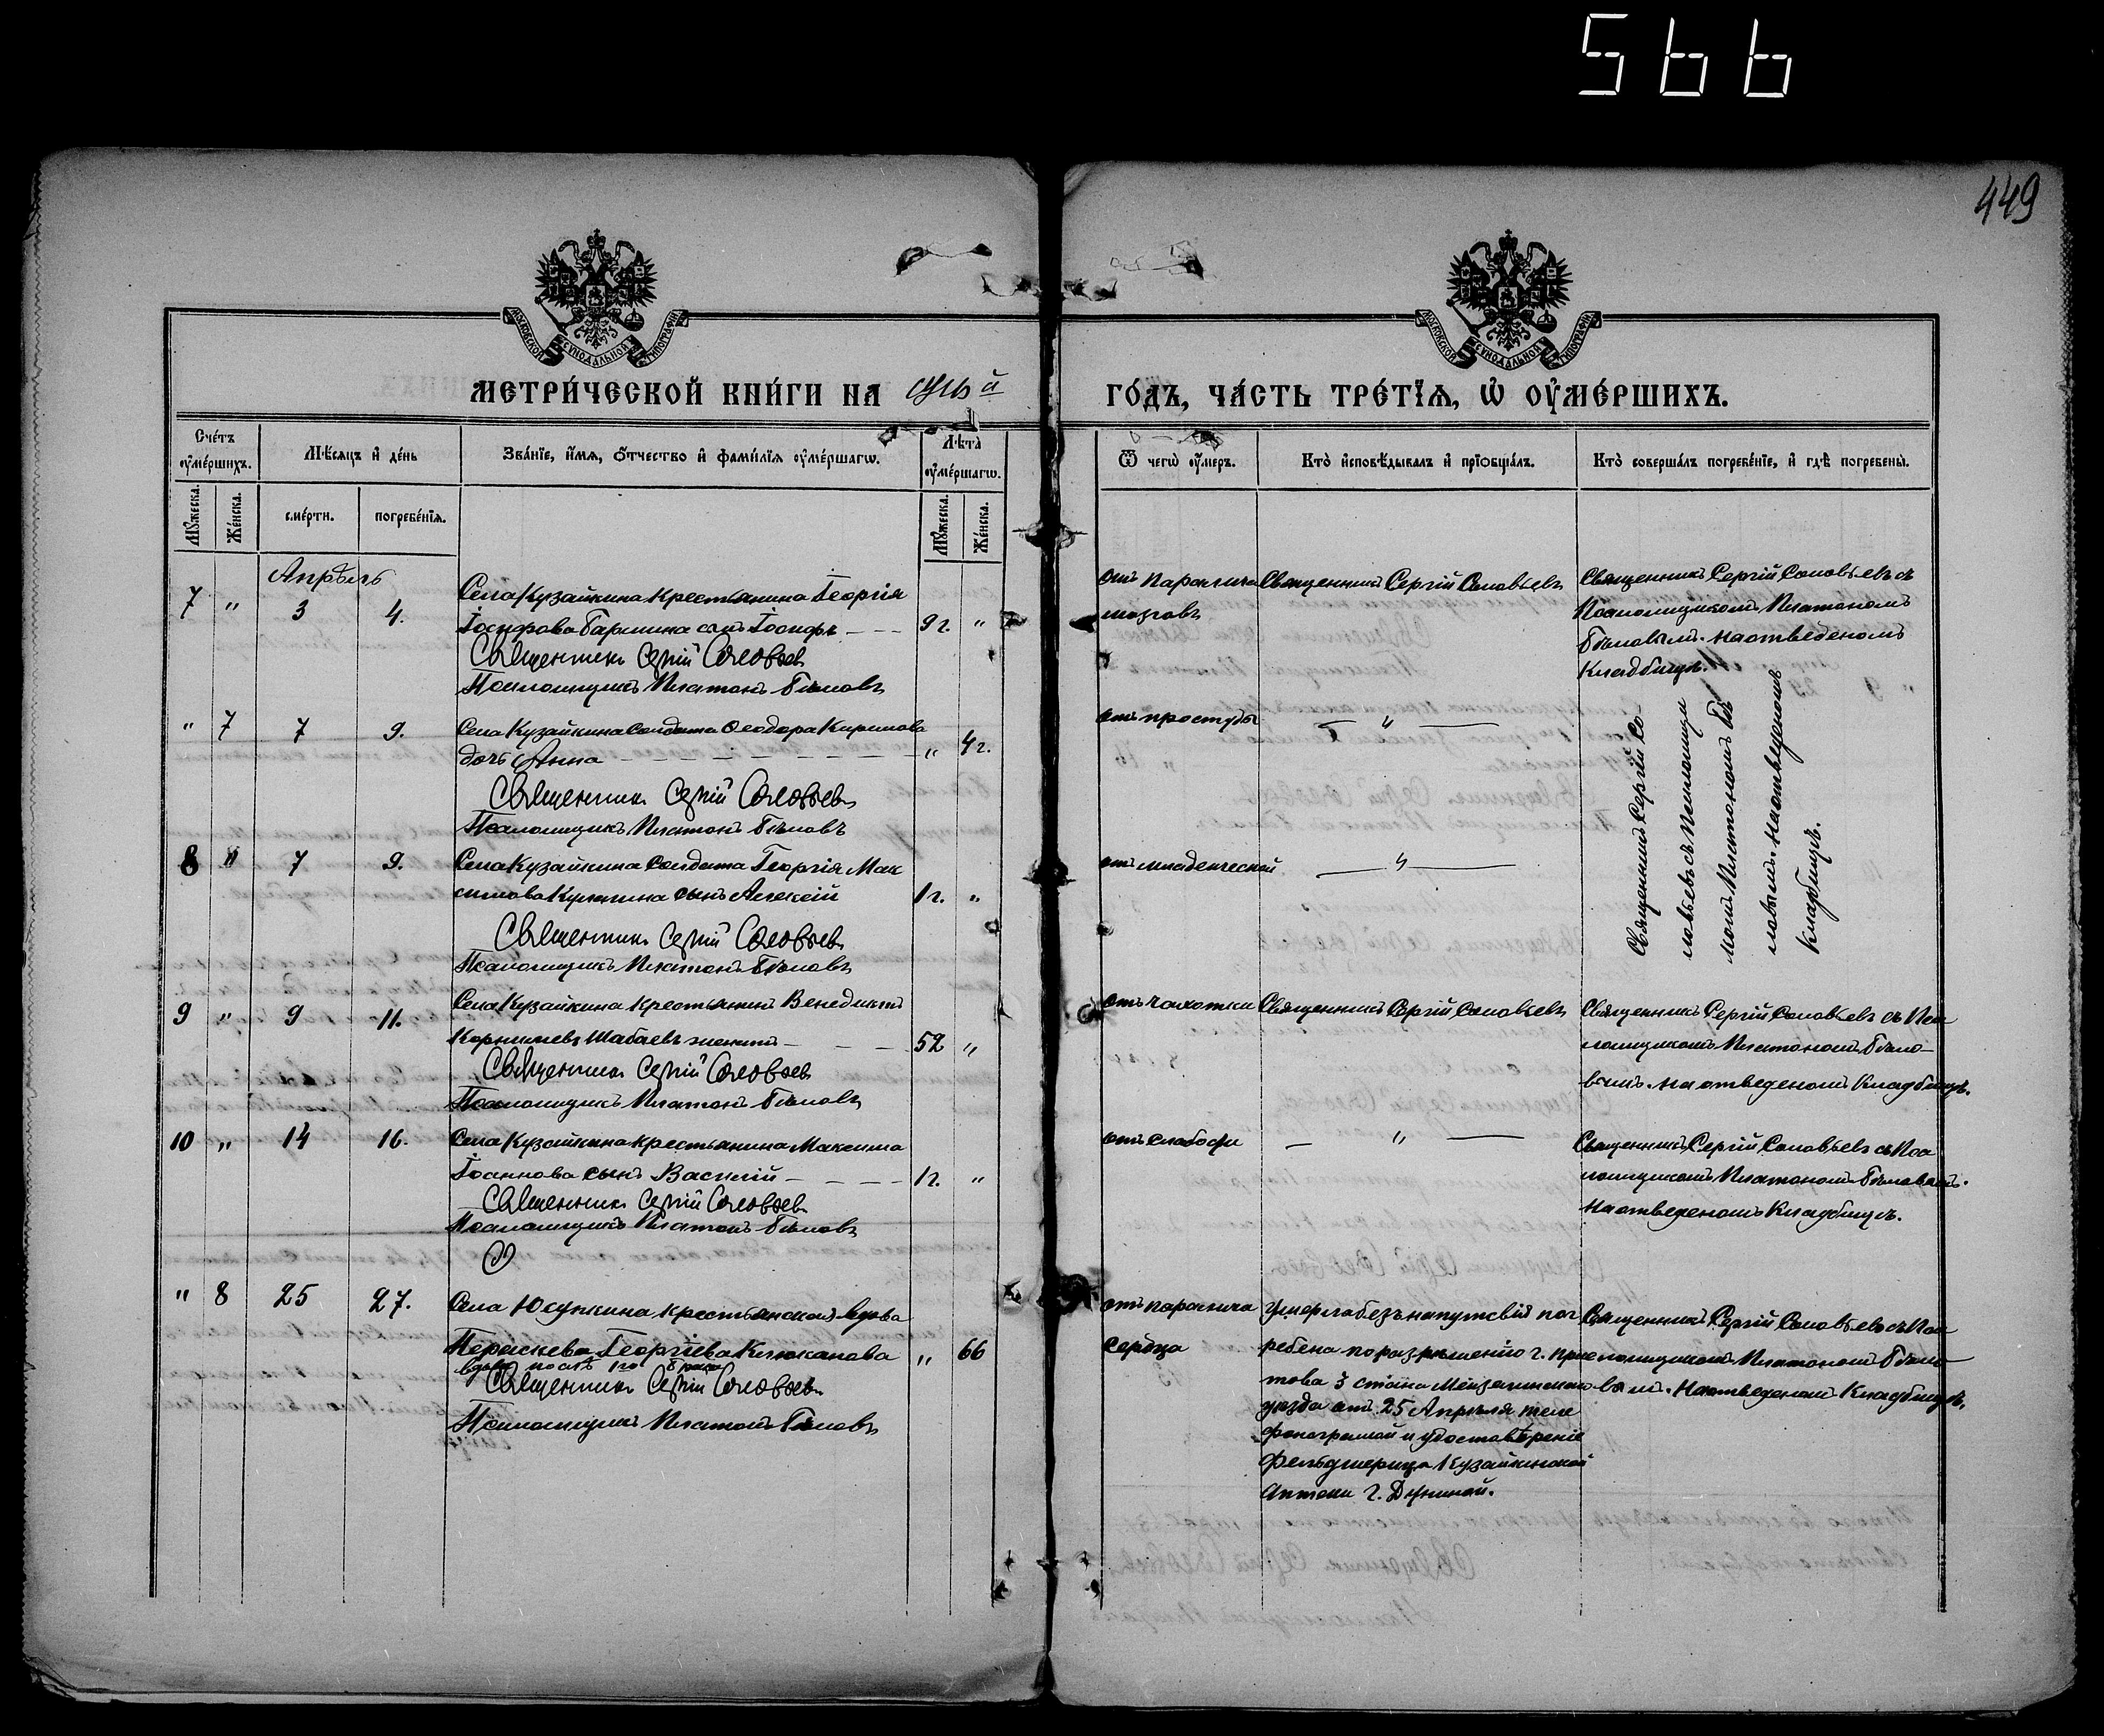 566
449
МОСКОВСКОЙ СѴНОДАЛЬНОЙ ТИПОГРАФІИ
МОСКОВСКОЙ СѴНОДАЛЬНОЙ ТИПОГРАФІИ
МЕТРИ́ЧЕСКОЙ КНИ́ГИ НА
ГО́ДЪ, ЧА́СТЬ ТРЕ́ТЇѦ, Ѡ҆ ОУ҆МЕ́РШИХЪ.
Сче́тъ оу҆ме́ршихъ.
Мꙋ́жеска.
Же́нска.
Мѣ́сяцъ и҆ де́нь
сме́рти.
погребе́нїѧ.
Зва́нїе, и҆́мѧ, ѻ҆́тчество и҆ фамѝлїѧ оу҆ме́ршагѡ.
Лѣ́та оу҆ме́ршагѡ.
Мꙋ́жеска.
Же́нска.
Ѿ чегѡ̀ оу҆́меръ.
Кто̀ и҆сповѣ́дывалъ и҆ прїѻбща́лъ.
Кто̀ соверша́лъ погребе́нїе, и҆ гдѣ̀ погребены̀.
Апрѣль
7 " 3 4. Села Кузайкина крестьянина Георгія
Іосифова Гаршина сынъ Іосифъ 9 г. "
Священникъ Сергій Соловьевъ
Псаломщикъ Платонъ Бѣловъ
отъ паралича
мозговъ
Священникъ Сергій Соловьевъ
Священникъ Сергій Соловьевъ съ
Псаломщикомъ Платономъ
Бѣловымъ. На отведеномъ
Кладбищѣ.
" 7 7 9. Села Кузайкина Солдата Ѳеодора Кирилова
дочь Анна " 4 г.
Священникъ Сергій Соловьевъ
Псаломщикъ Платонъ Бѣловъ
отъ простуды
"
Священникъ Сергій Со-
ловьевъ съ Псаломщи
комъ Платономъ Бѣ
ловымъ. На отведеномъ
Кладбищѣ.
8 " 7 9. Села Кузайкина Солдата Георгія Мак
симова сынъ Алексій 1 г. "
Священникъ Сергій Соловьевъ
Псаломщикъ Платонъ Бѣловъ
отъ младенческой
"
9 " 9 11. Села Кузайкина крестьянинъ Венедиктъ
Корнилиевъ Шабаевъ женатъ 52 "
Священникъ Сергій Соловьевъ
Псаломщикъ Платонъ Бѣловъ
отъ чахотки
Священникъ Сергій Соловьевъ
Священникъ Сергій Соловьевъ съ Пса
ломщикомъ Платономъ Бѣло-
вымъ. На отведеномъ Кладбищѣ.
10 " 14 16. Села Кузайкина крестьянина Максима
Іоаннова сынъ Василій 1 г. "
Священникъ Сергій Соловьевъ
Псаломщикъ Платонъ Бѣловъ
отъ слабости
"
Священникъ Сергій Соловьевъ съ Пса
ломщикомъ Платономъ Бѣловымъ.
На отведеномъ Кладбищѣ.
" 8 25 27. Села Юсупкина крестьянская вдова
Параскева Георгіева Клюканова " 66
вдова послѣ 1го брака
Священникъ Сергій Соловьевъ
Псаломщикъ Платонъ Бѣловъ
отъ паралича
сердца
Умерла безъ напутствія пог
ребена по разрѣшенію г. прис
това 3 стана Мензелинскаго
уѣзда отъ 25 Апрѣля теле
фонограммой и удостовѣреніе
Фельдшерица Кузайкинской
Аптеки г. Дуниной.
Священникъ Сергій Соловьевъ съ Пса
ломщикомъ Платономъ Бѣло
вымъ. На отведеномъ Кладбищѣ.